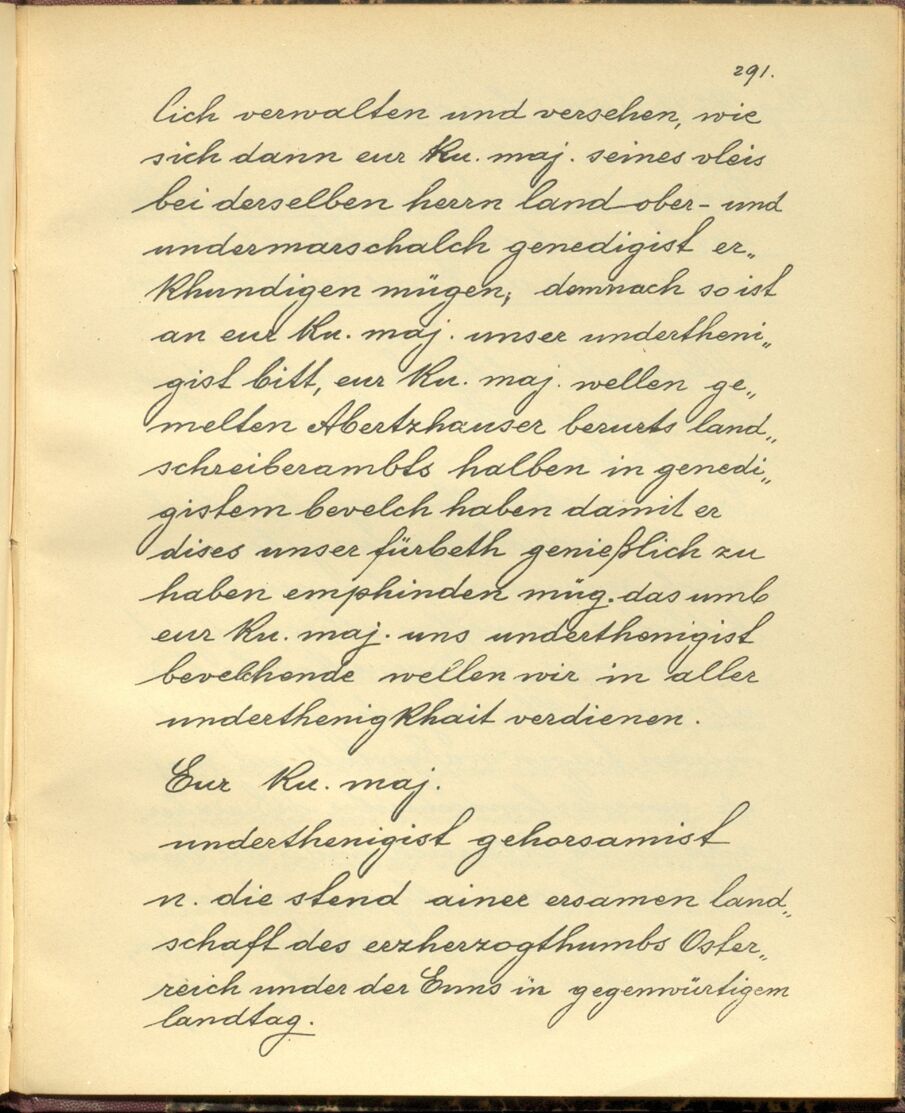 291.
lich verwalten und versehen, wie
sich dann eur Ku. maj. seines vleis
bei derselben herrn land ober- und
undermarschalch genedigist er„
khundigen mügen; demnach so ist
an eur Ku. maj. unser undertheni„
gist bitt, eur Ku. maj. wellen ge„
melten Abertzhauser berurts land„
schreiberambts halben in genedi„
gistem bevelch haben damit er
dises unser fürbeth genießlich zu
haben emphinden müg. das umb
eur Ku. maj. uns underthenigist
bevelhende wellen wir in aller
underthenigkhait verdienen.
Eur Ku. maj.
underthenigist gehorsamist
n. die stend ainer ersamen land„
schaft des erzherzogthumbs Oster„
reich under der Enns in gegenwürtigem
landtag.